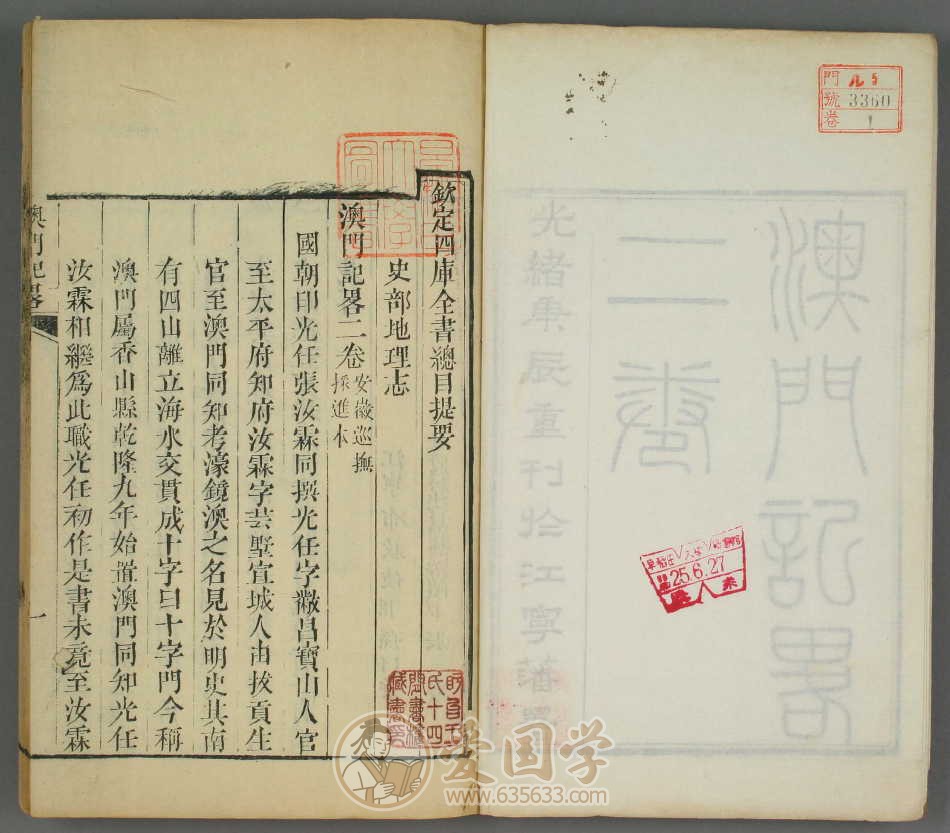 門 ル5
號 3360
卷 1
澳門記畧
二卷
光緒庚辰重刊於江寧藩署
25.6.27
欽定四庫全書總目提要
史部地理志
澳門記畧二卷
安徽巡撫
採進本
國朝印光任張汝霖同撰光任字黻昌寶山人官
至太平府知府汝霖字芸墅宣城人由拔貢生
官至澳門同知考濠鏡澳之名見於明史其南
有四山離立海水交貫成十字曰十字門今稱
澳門屬香山縣乾隆九年始置澳門同知光任
汝霖相繼為此職光任初作是書未竟至汝霖
澳門記畧
一
盱眙王
氏十四
間書樓
藏書印
爱国学
www.635633.com